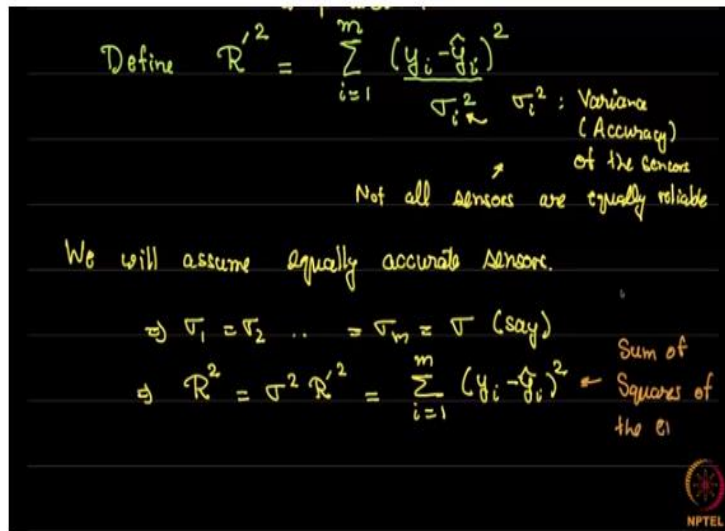 Define R'² = m∑i=1 (yᵢ - ŷᵢ)² / σᵢ²
σᵢ² : Variance
(Accuracy)
of the sensors
Not all sensors are equally reliable
We will assume equally accurate sensors.
⇒ σ₁ = σ₂ .. = σₘ = σ (say)
⇒ R² = σ² R'² = m∑i=1 (yᵢ - ŷᵢ)² ←
Sum of
Squares of
the er
NPTEL